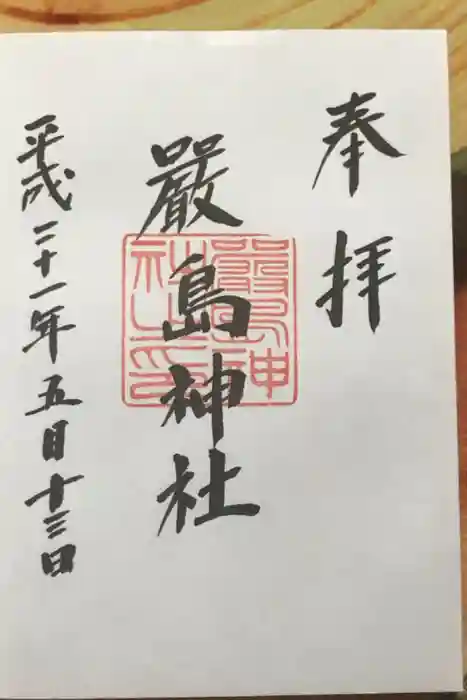 奉拝
嚴島神社
嚴島神
社之印
平成二十一年五月十三日